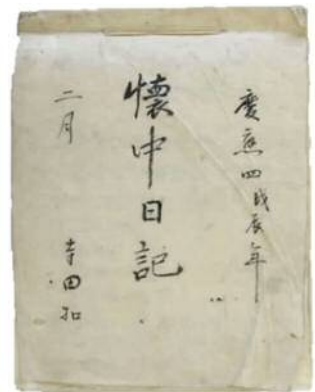 慶應四戊辰年
懷中日記
二月　寺田扣